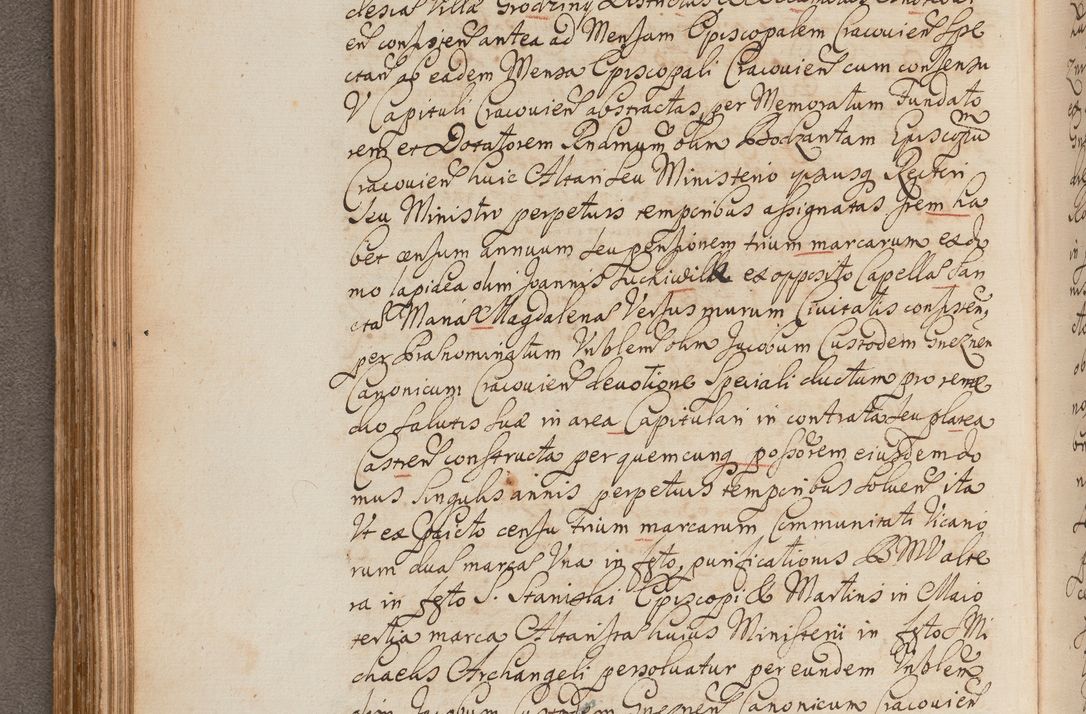 clesia Villæ Grodziny Districtus
en consisten antea ad Mensam Episcopalem Cracovien spe
ctan ab eadem Mensa Episcopali Cracovien cum consensu
V Capituli Cracovien abstractas, per Memoratum Fundato
rem et Dotatorem Rndmum olim Bodzantam Episcopum
Cracovien huic Altari seu Ministerio ipsiusq Rectori
seu Ministro perpetuis temporibus assignatas Item ha
bet censum annuum seu pensionem trium marcarum ex do
mo lapidea olim Joannis Suchiwilk ex opposito Capellæ San
ctæ Mariæ Magdalenæ Versus murum Civitatis consisten,
per Prænominatum Vnblem olim Jacobum Custodem Gneznen
Canonicum Cracovien devotione speciali ductum pro reme
dio salutis suæ in area Capitulari in contrata seu platea
Castren constructa per quemcunq possorem eiusdem do
mus singulis annis perpetuis temporibus solven ita
Vt ex Prædicto censu trium marcarum Communitati Vicario
rum duæ marcæ Vna in festo, purificationis BMV alte
ra in festo S. Stanislai Episcopi & Martiris in Maio
tertia marca Altaristæ huius Ministerii in festo S Mi
chaelis Archangeli persolvatur per eundem Vnblem
olim Jacobum Custodem Gneznen Canonicum Cracovien